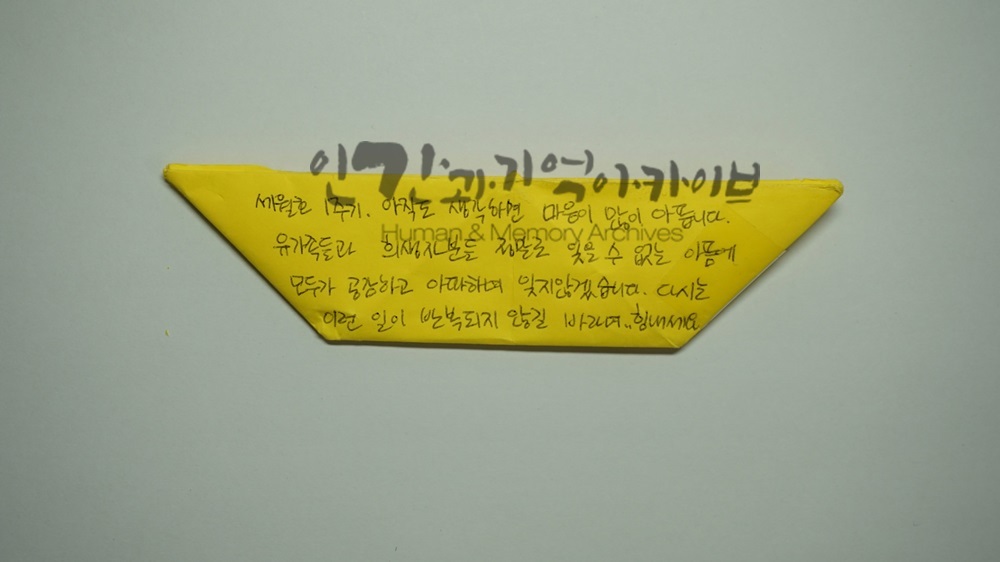 인간과기억아카이브
Human & Memory Archives
세월호 1주기. 아직도 생각하면 마음이 많이 아픕니다.
유가족들과 희생자분들 정말로 잊을 수 없는 아픔에
모두가 공감하고 아파하며 잊지않겠습니다. 다시는
이런 일이 반복되지 않길 바라며..힘내세요